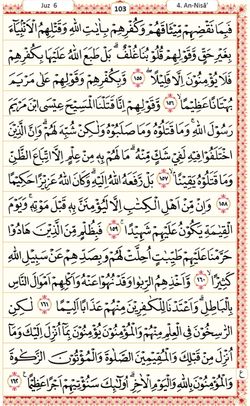 Juz 6 103 4. An-Nisā'
فَبِمَا نَقْضِهِمْ مِّيْثَاقَهُمْ وَكُفْرِهِمْ بِاٰيٰتِ اللّٰهِ وَقَتْلِهِمُ الْاَنْۢبِيَآءَ
بِغَيْرِ حَقٍّ وَّقَوْلِهِمْ قُلُوْبُنَا غُلْفٌ ۗ بَلْ طَبَعَ اللّٰهُ عَلَيْهَا بِكُفْرِهِمْ
فَلَا يُؤْمِنُوْنَ اِلَّا قَلِيْلًا ۖ ١٥٥ وَّبِكُفْرِهِمْ وَقَوْلِهِمْ عَلٰى مَرْيَمَ
بُهْتَانًا عَظِيْمًا ۙ ١٥٦ وَّقَوْلِهِمْ اِنَّا قَتَلْنَا الْمَسِيْحَ عِيْسَى ابْنَ مَرْيَمَ
رَسُوْلَ اللّٰهِ ۚ وَمَا قَتَلُوْهُ وَمَا صَلَبُوْهُ وَلٰكِنْ شُبِّهَ لَهُمْ ۗ وَاِنَّ الَّذِيْنَ
اخْتَلَفُوْا فِيْهِ لَفِيْ شَكٍّ مِّنْهُ ۗ مَا لَهُمْ بِهٖ مِنْ عِلْمٍ اِلَّا اتِّبَاعَ الظَّنِّ
وَمَا قَتَلُوْهُ يَقِيْنًا ۙ ١٥٧ بَلْ رَّفَعَهُ اللّٰهُ اِلَيْهِ ۗ وَكَانَ اللّٰهُ عَزِيْزًا حَكِيْمًا
١٥٨ وَاِنْ مِّنْ اَهْلِ الْكِتٰبِ اِلَّا لَيُؤْمِنَنَّ بِهٖ قَبْلَ مَوْتِهٖ ۚ وَيَوْمَ
الْقِيٰمَةِ يَكُوْنُ عَلَيْهِمْ شَهِيْدًا ۚ ١٥٩ فَبِظُلْمٍ مِّنَ الَّذِيْنَ هَادُوْا
حَرَّمْنَا عَلَيْهِمْ طَيِّبٰتٍ اُحِلَّتْ لَهُمْ وَبِصَدِّهِمْ عَنْ سَبِيْلِ اللّٰهِ
كَثِيْرًا ۙ ١٦٠ وَّاَخْذِهِمُ الرِّبٰوا وَقَدْ نُهُوْا عَنْهُ وَاَكْلِهِمْ اَمْوَالَ النَّاسِ
بِالْبَاطِلِ ۗ وَاَعْتَدْنَا لِلْكٰفِرِيْنَ مِنْهُمْ عَذَابًا اَلِيْمًا ١٦١ لٰكِنِ
الرّٰسِخُوْنَ فِى الْعِلْمِ مِنْهُمْ وَالْمُؤْمِنُوْنَ يُؤْمِنُوْنَ بِمَآ اُنْزِلَ اِلَيْكَ وَمَآ
اُنْزِلَ مِنْ قَبْلِكَ وَالْمُقِيْمِيْنَ الصَّلٰوةَ وَالْمُؤْتُوْنَ الزَّكٰوةَ
وَالْمُؤْمِنُوْنَ بِاللّٰهِ وَالْيَوْمِ الْاٰخِرِ ۗ اُولٰۤىِٕكَ سَنُؤْتِيْهِمْ اَجْرًا عَظِيْمًا ١٦٢